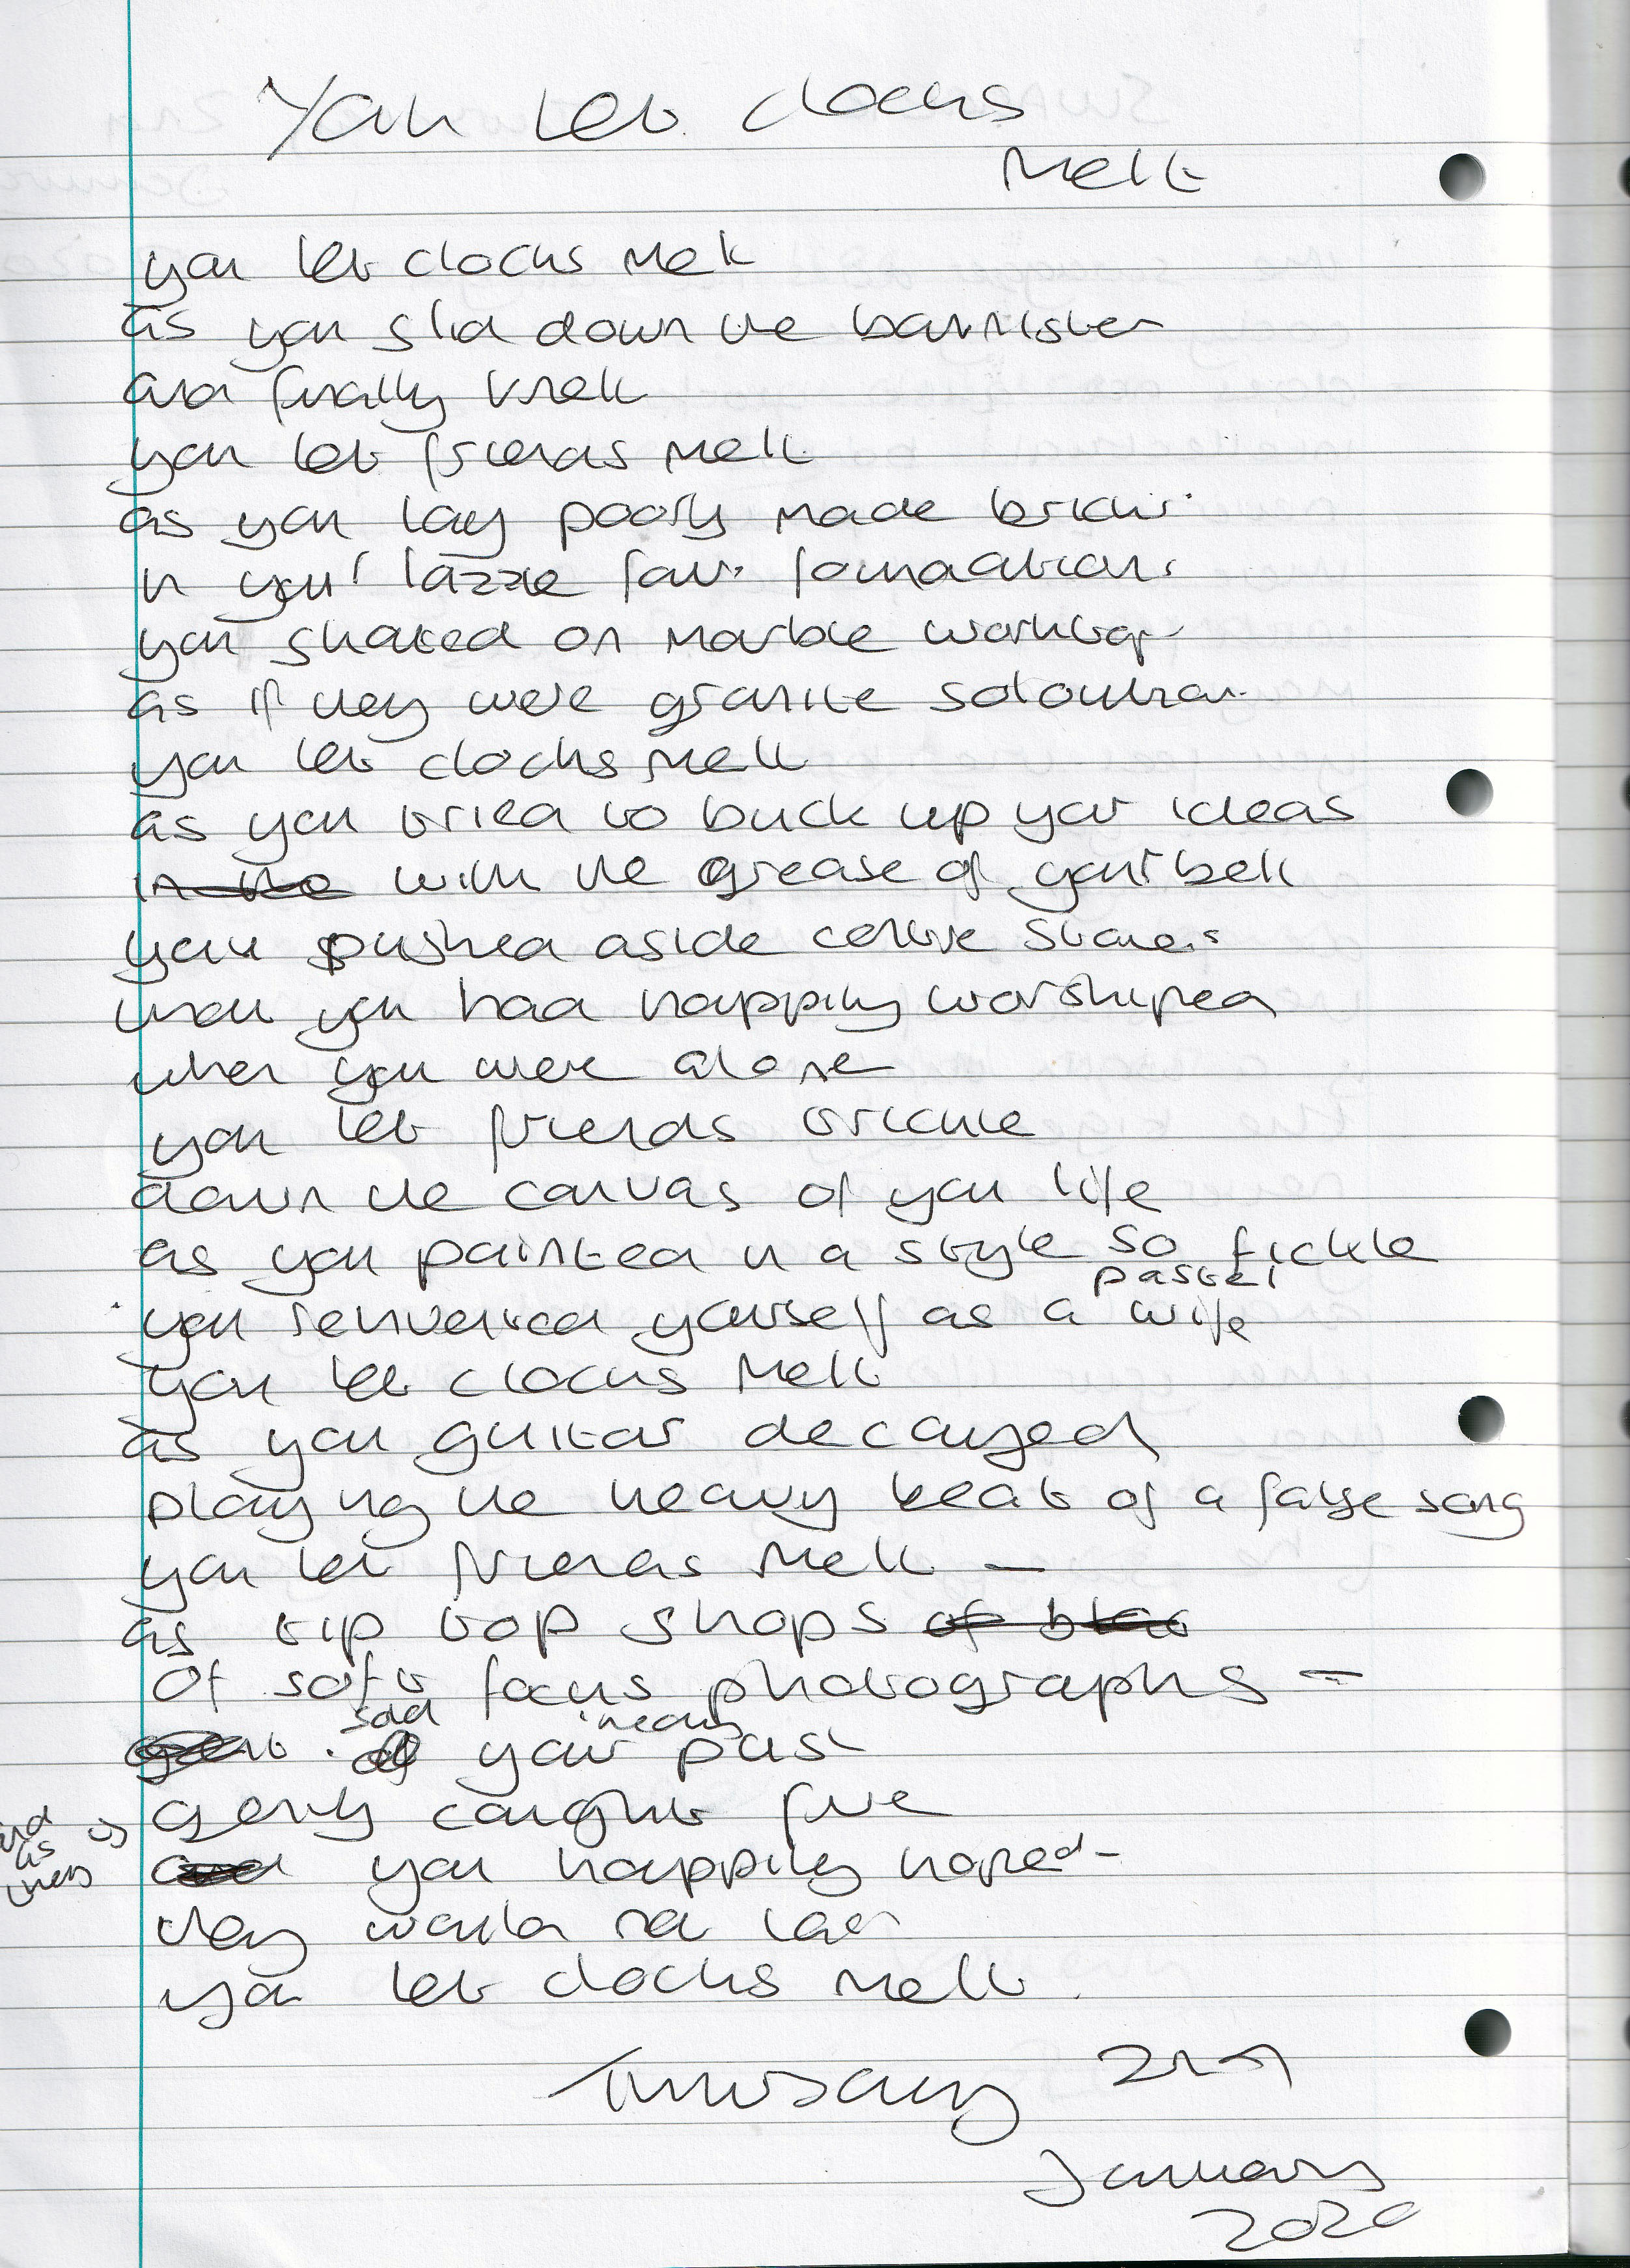 You let clocks
Melt
you let clocks melt
as you slid down the bannister
and finally knelt
you let friends melt
as you lay poorly made bricks
in your lazze fair foundations
you skated on marble worktops
as if they were granite
you let clocks melt
as you tried to buck up your ideas
with the grease of your belt
you pushed aside celtic stones
that you had happily worshiped
when you were alone
you let friends trickle
down the canvas of your life
as you painted in a style so fickle
pastel
you reinvented yourself as a wife
you let clocks melt
as you guitar decayed
playing the heavy beat of a false song
you let friends melt –
as tip top shops
of soft focus photographs –
sad
your past
gently caught fire
and
as
they
you happily hoped –
they would not last
you let clocks melt.
2nd
January
2020